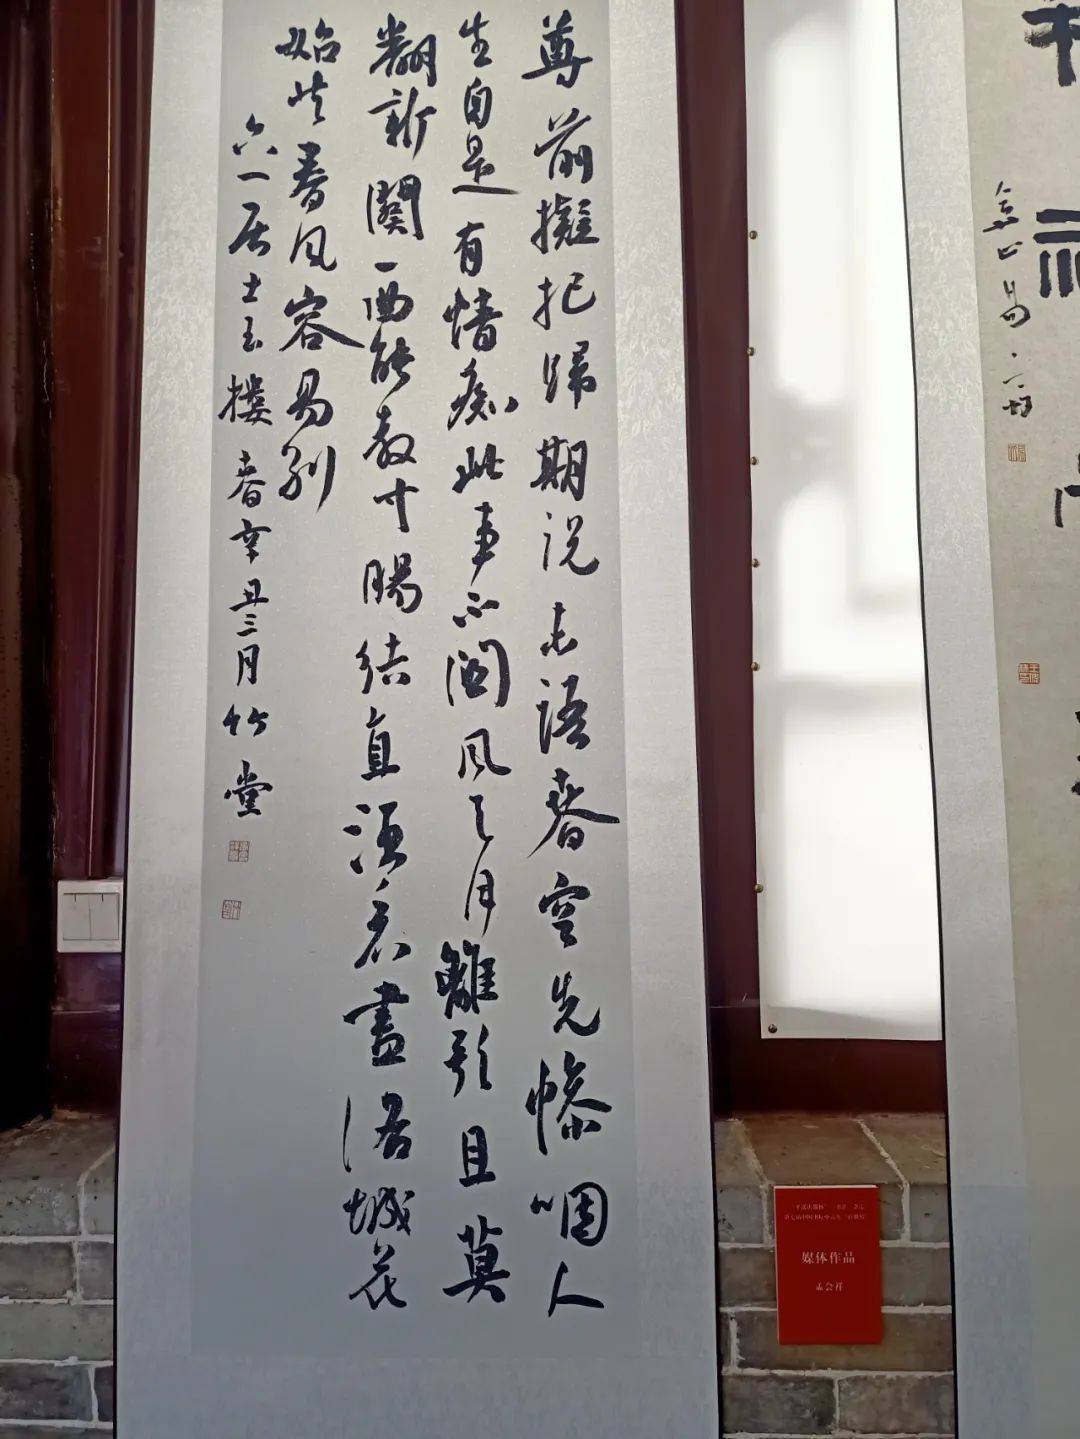 尊前擬把歸期説未語春容先慘咽人
生自是有情痴此事不關風與月離歌且莫
翻新闋一曲能教寸腸結直須看盡洛城花
始共春風容易別
六一居士玉樓春辛丑三月竹堂
媒体作品
孟会祥